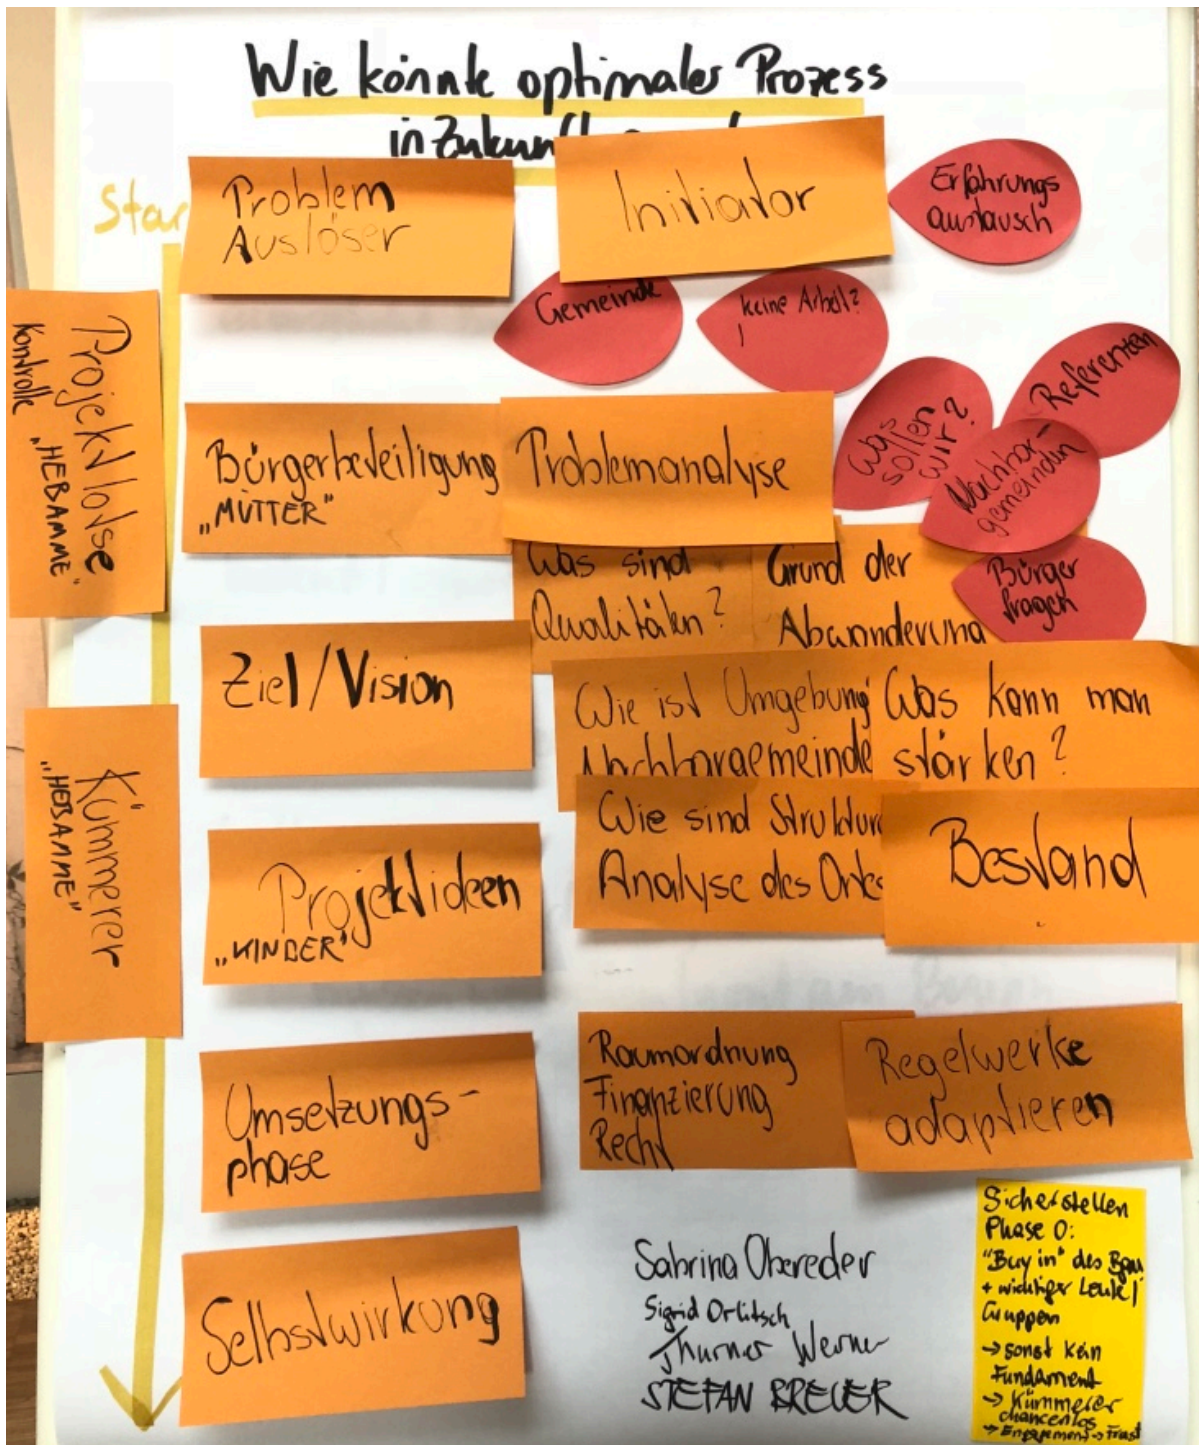 Wie könnte optimaler Prozess
in Zukunft
Star
Problem
Auslöser
Initiator
Erfahrungs
austausch
Gemeinde
keine Arbeit?
!
Projektlotse
Kontrolle „HEBAMME"
Bürgerbeteiligung
„MÜTTER"
Problemanalyse
Was
sollen
wir?
Referenten
Nachbar-
gemeinden
Bürger
fragen
Was sind
Qualitäten?
Grund der
Abwanderung
Ziel/Vision
Wie ist Umgebung
Nachbargemeinde
Was kann man
stärken?
Wie sind Struktur
Analyse des Ortes
Bestand
Kümmerer
„HEBAMME"
Projektideen
„KINDER"
Umsetzungs-
phase
Raumordnung
Finanzierung
Recht
Regelwerke
adaptieren
Selbstwirkung
Sabrina Obereder
Sigrid Orlitsch
Thurner Werner
STEFAN BREUER
Sicherstellen
Phase 0:
"Buy in" des Bgm
+ wichtiger Leute/
Gruppen
→ sonst kein
Fundament
→ Kümmerer
chancenlos
→ Engagement → Frust